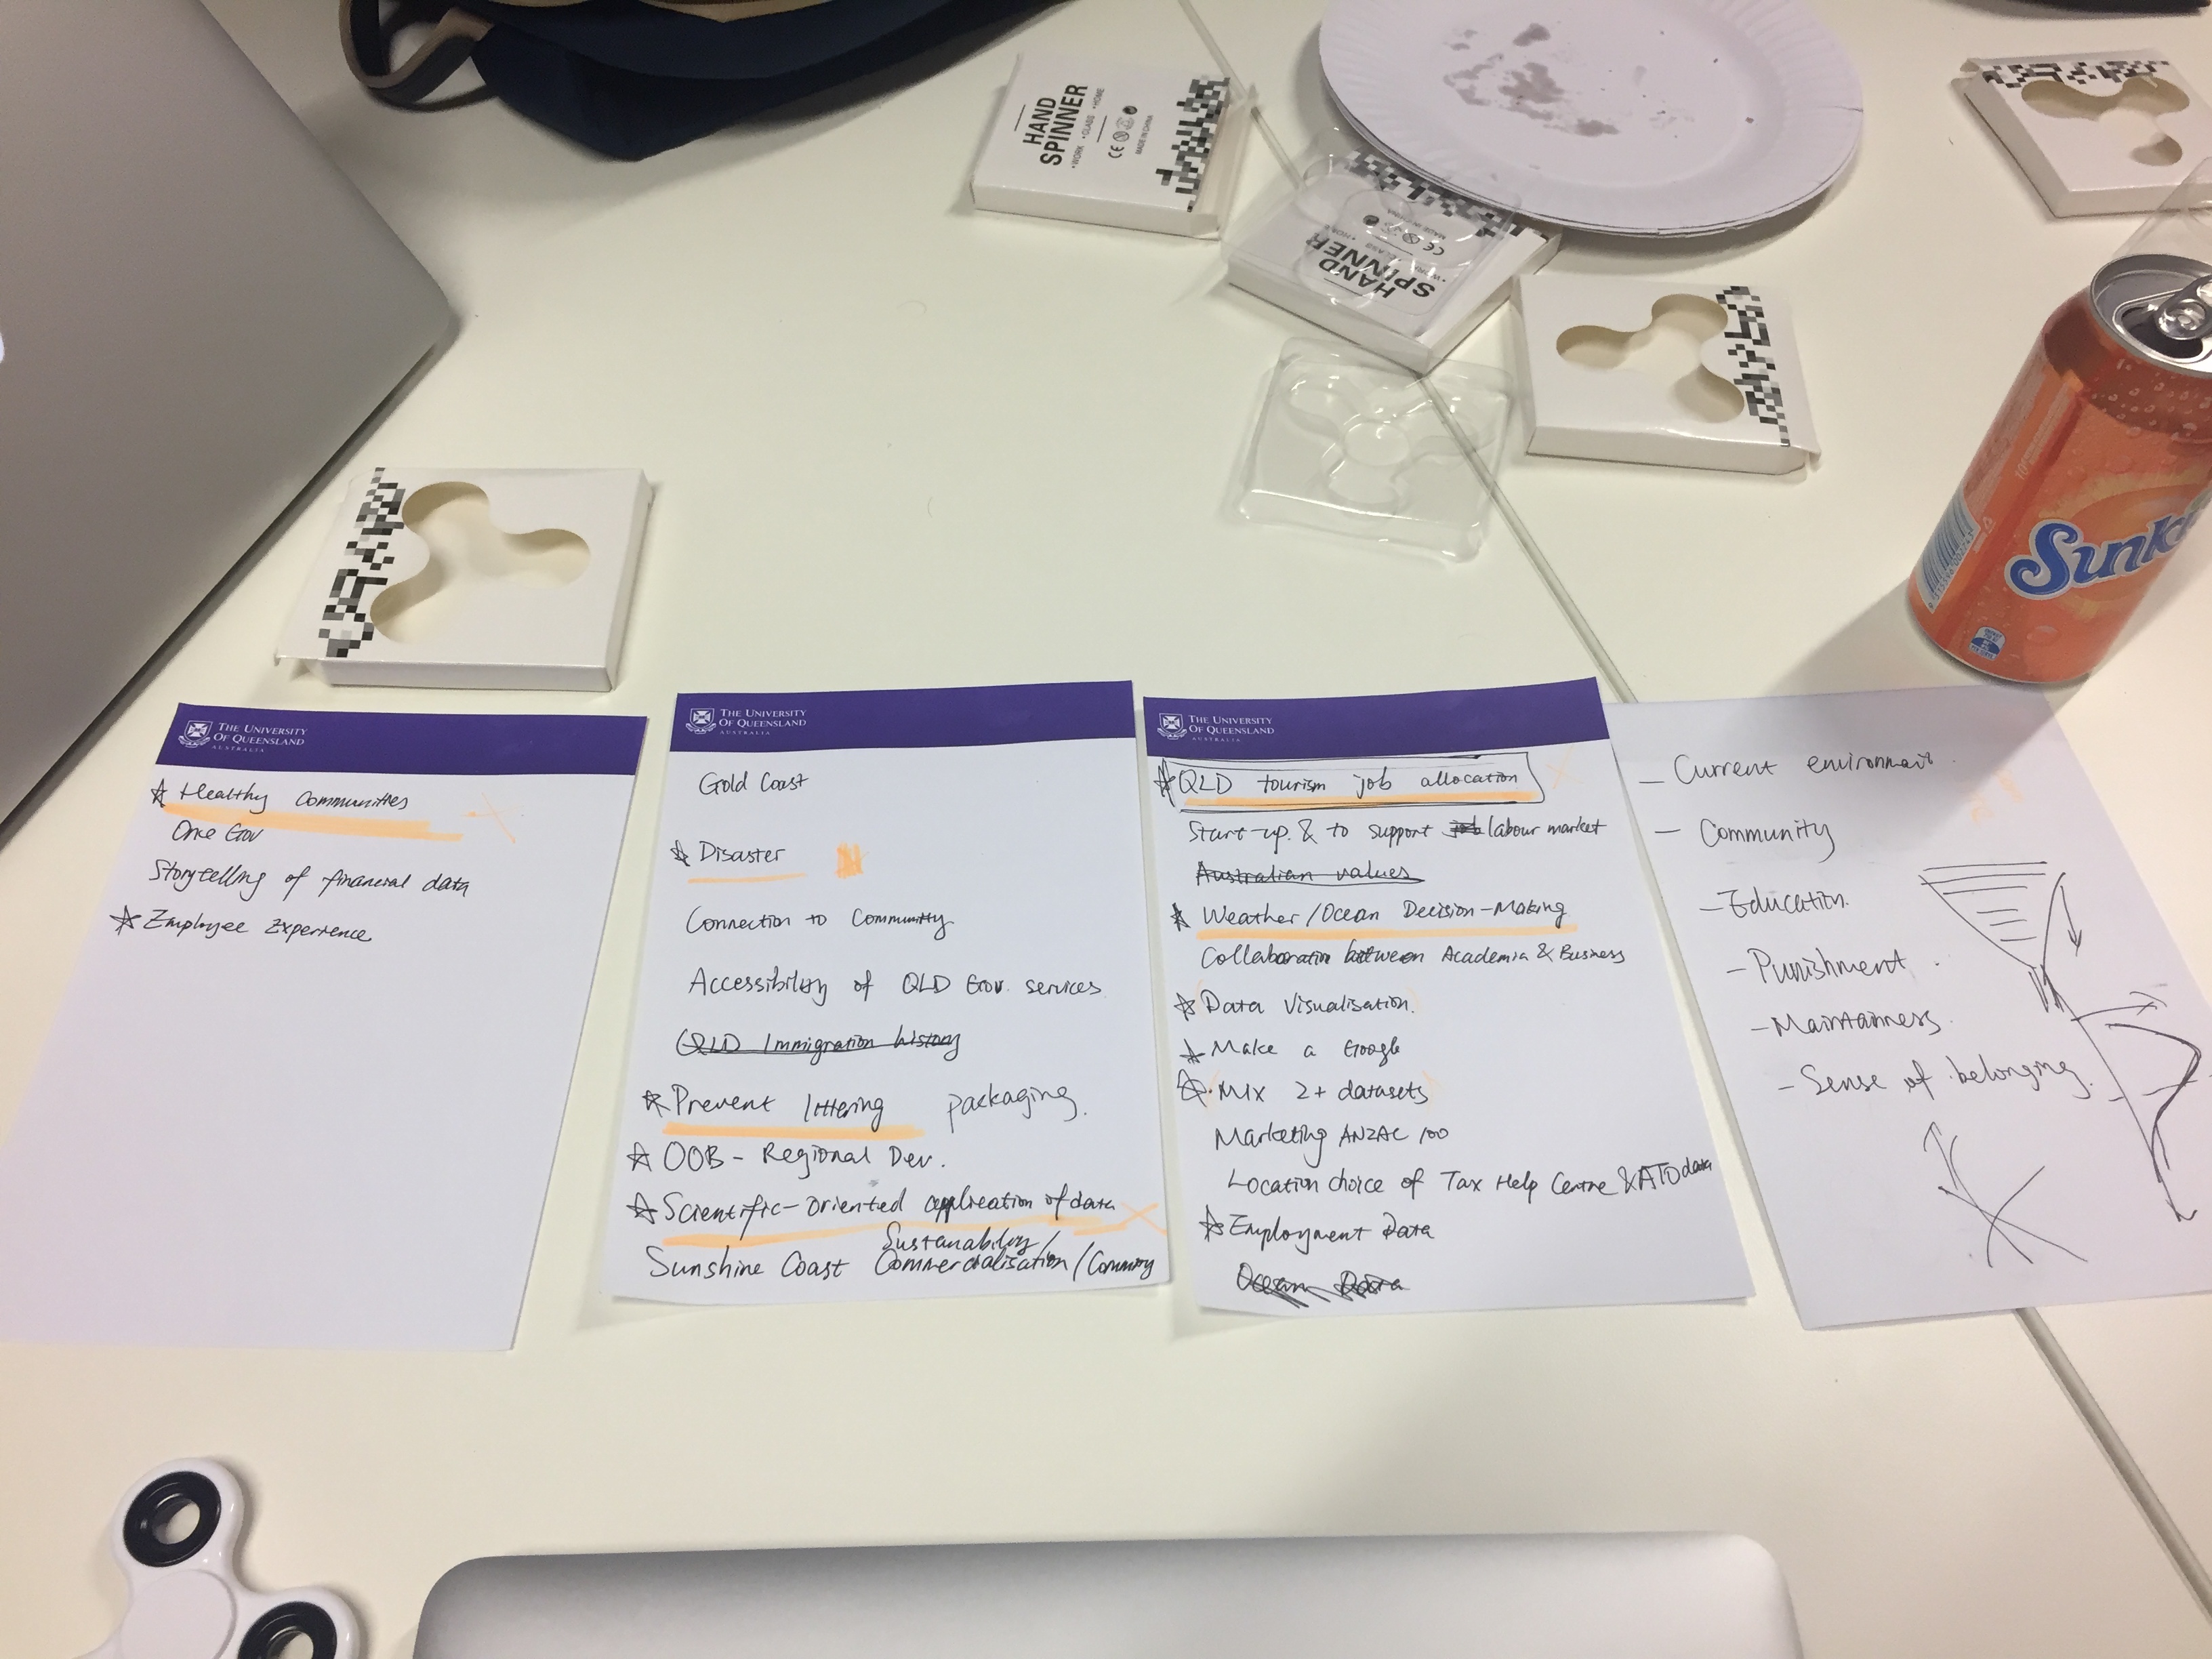 HAND
SPINNER
•WORK •CLASS •HOME
CE
MADE IN CHINA
HAND
SPINNER
CE
Sunk
THE UNIVERSITY
OF QUEENSLAND
AUSTRALIA
Healthy Communities
One Gov
Storytelling of financial data
Employee Experience
THE UNIVERSITY
OF QUEENSLAND
AUSTRALIA
Gold Coast
Disaster
Connection to Community
Accessibility of QLD Gov. services
QLD Immigration history
Prevent littering packaging.
OOB - Regional Dev.
Scientific-oriented application of data
Sustainability/
Sunshine Coast Commercialisation /
THE UNIVERSITY
OF QUEENSLAND
AUSTRALIA
QLD tourism job allocation
Start-up. & to support labour market
Australian values
Weather/Ocean Decision-Making
Collaboration between Academia & Business
Data Visualisation.
Make a Google
Mix 2+ datasets
Marketing ANZAC 100
Location choice of Tax Help Centre & ATO data
Employment Data
Ocean Data
- Current environment
- Community
- Education.
- Punishment
- Maintainness.
- Sense of belonging.